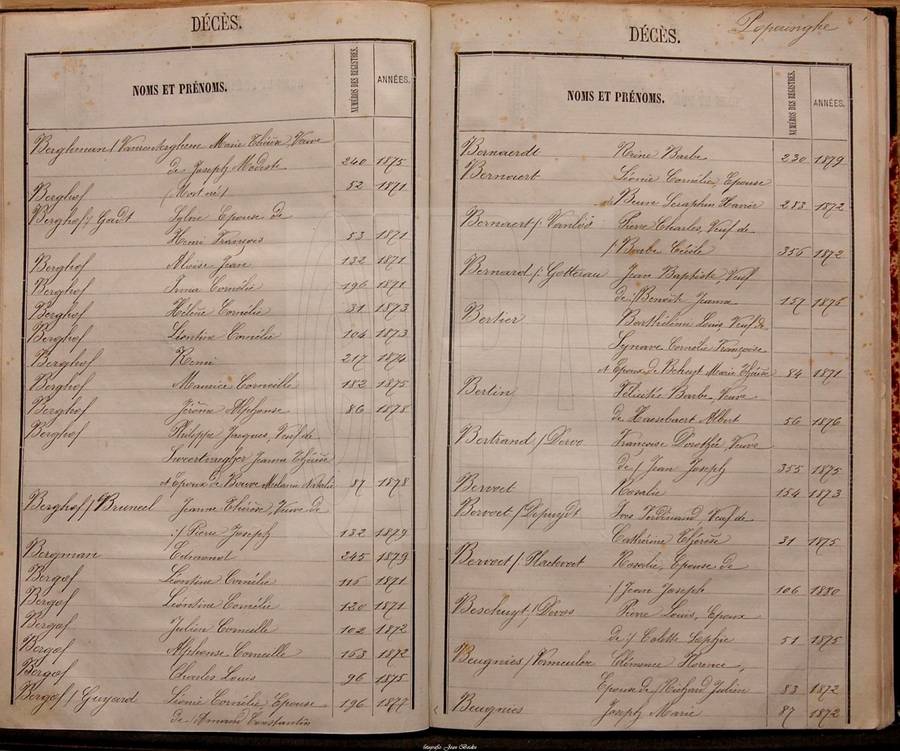 DÉCÈS.
NOMS ET PRÉNOMS. NUMÉROS DES REGISTRES. ANNÉES.
Bergheman / Marie Thérèse, Veuve
de Joseph Modeste 240 1875
Berghof (Mort né) 52 1871
Berghof / Gadt Sylvie Epouse de
Henri François 53 1871
Berghof Aloïse Jean 132 1871
Berghof Irma Cornélie 196 1871
Berghof Hélène Cornélie 31 1873
Berghof Léontine Cornélie 104 1873
Berghof Remi 217 1874
Berghof Maurice Corneille 182 1875
Berghof Jérôme Alphonse 86 1878
Berghof Philippe Jacques, Veuf de
Jeanne Thérèse
et Epoux de Nathalie 87 1878
Berghof / Bruneel Jeanne Thérèse, Veuve de
:/ Pierre Joseph 132 1879
Bergman Edmond 245 1879
Bergöf Léontine Cornélie 115 1871
Bergöf Léontine Cornélie 120 1871
Bergöf Julien Corneille 102 1872
Bergöf Alphonse Corneille 153 1872
Bergöf Charles Louis 96 1875
Bergöf / Guyard Léonie Cornélie, Epouse 196 1877
de Armand Constantin
DÉCÈS. Poperinghe
NOMS ET PRÉNOMS. NUMÉROS DES REGISTRES. ANNÉES.
Bernaerdt Reine Barbe 230 1879
Bernaert Léonie Cornélie, Epouse
Beun Seraphin Xavier 283 1872
Bernaert / Vanlös Pierre Charles, Veuf de
/ Barbe Cécile 356 1872
Bernard / Jean Baptiste, Veuf
de / Benoit Jeanne 157 1876
Bertier Barthélémi Louis, Veuf de
Synave Cornélie Françoise
et Epoux de Behuyt Marie Thérèse 84 1871
Bertin Félicité Barbe, Veuve
de Hasebaert Albert 56 1876
Bertrand / Françoise Dorothée, Veuve
de / Jean Joseph 355 1875
Bervoet Rosalie 154 1873
Bervoet / Depuydt Ivos Ferdinand, Veuf de
Catherine Thérèse 31 1875
Bervoet / Rosalie, Epouse de
/ Jean Joseph 106 1880
Beschuyt / Devos Pierre Louis, Epoux
de / Colette Sophie 51 1875
Beugnies / Vermeulen Clémence Florence,
Epouse de Richard Julien 83 1872
Beugnies Joseph Marie 87 1872